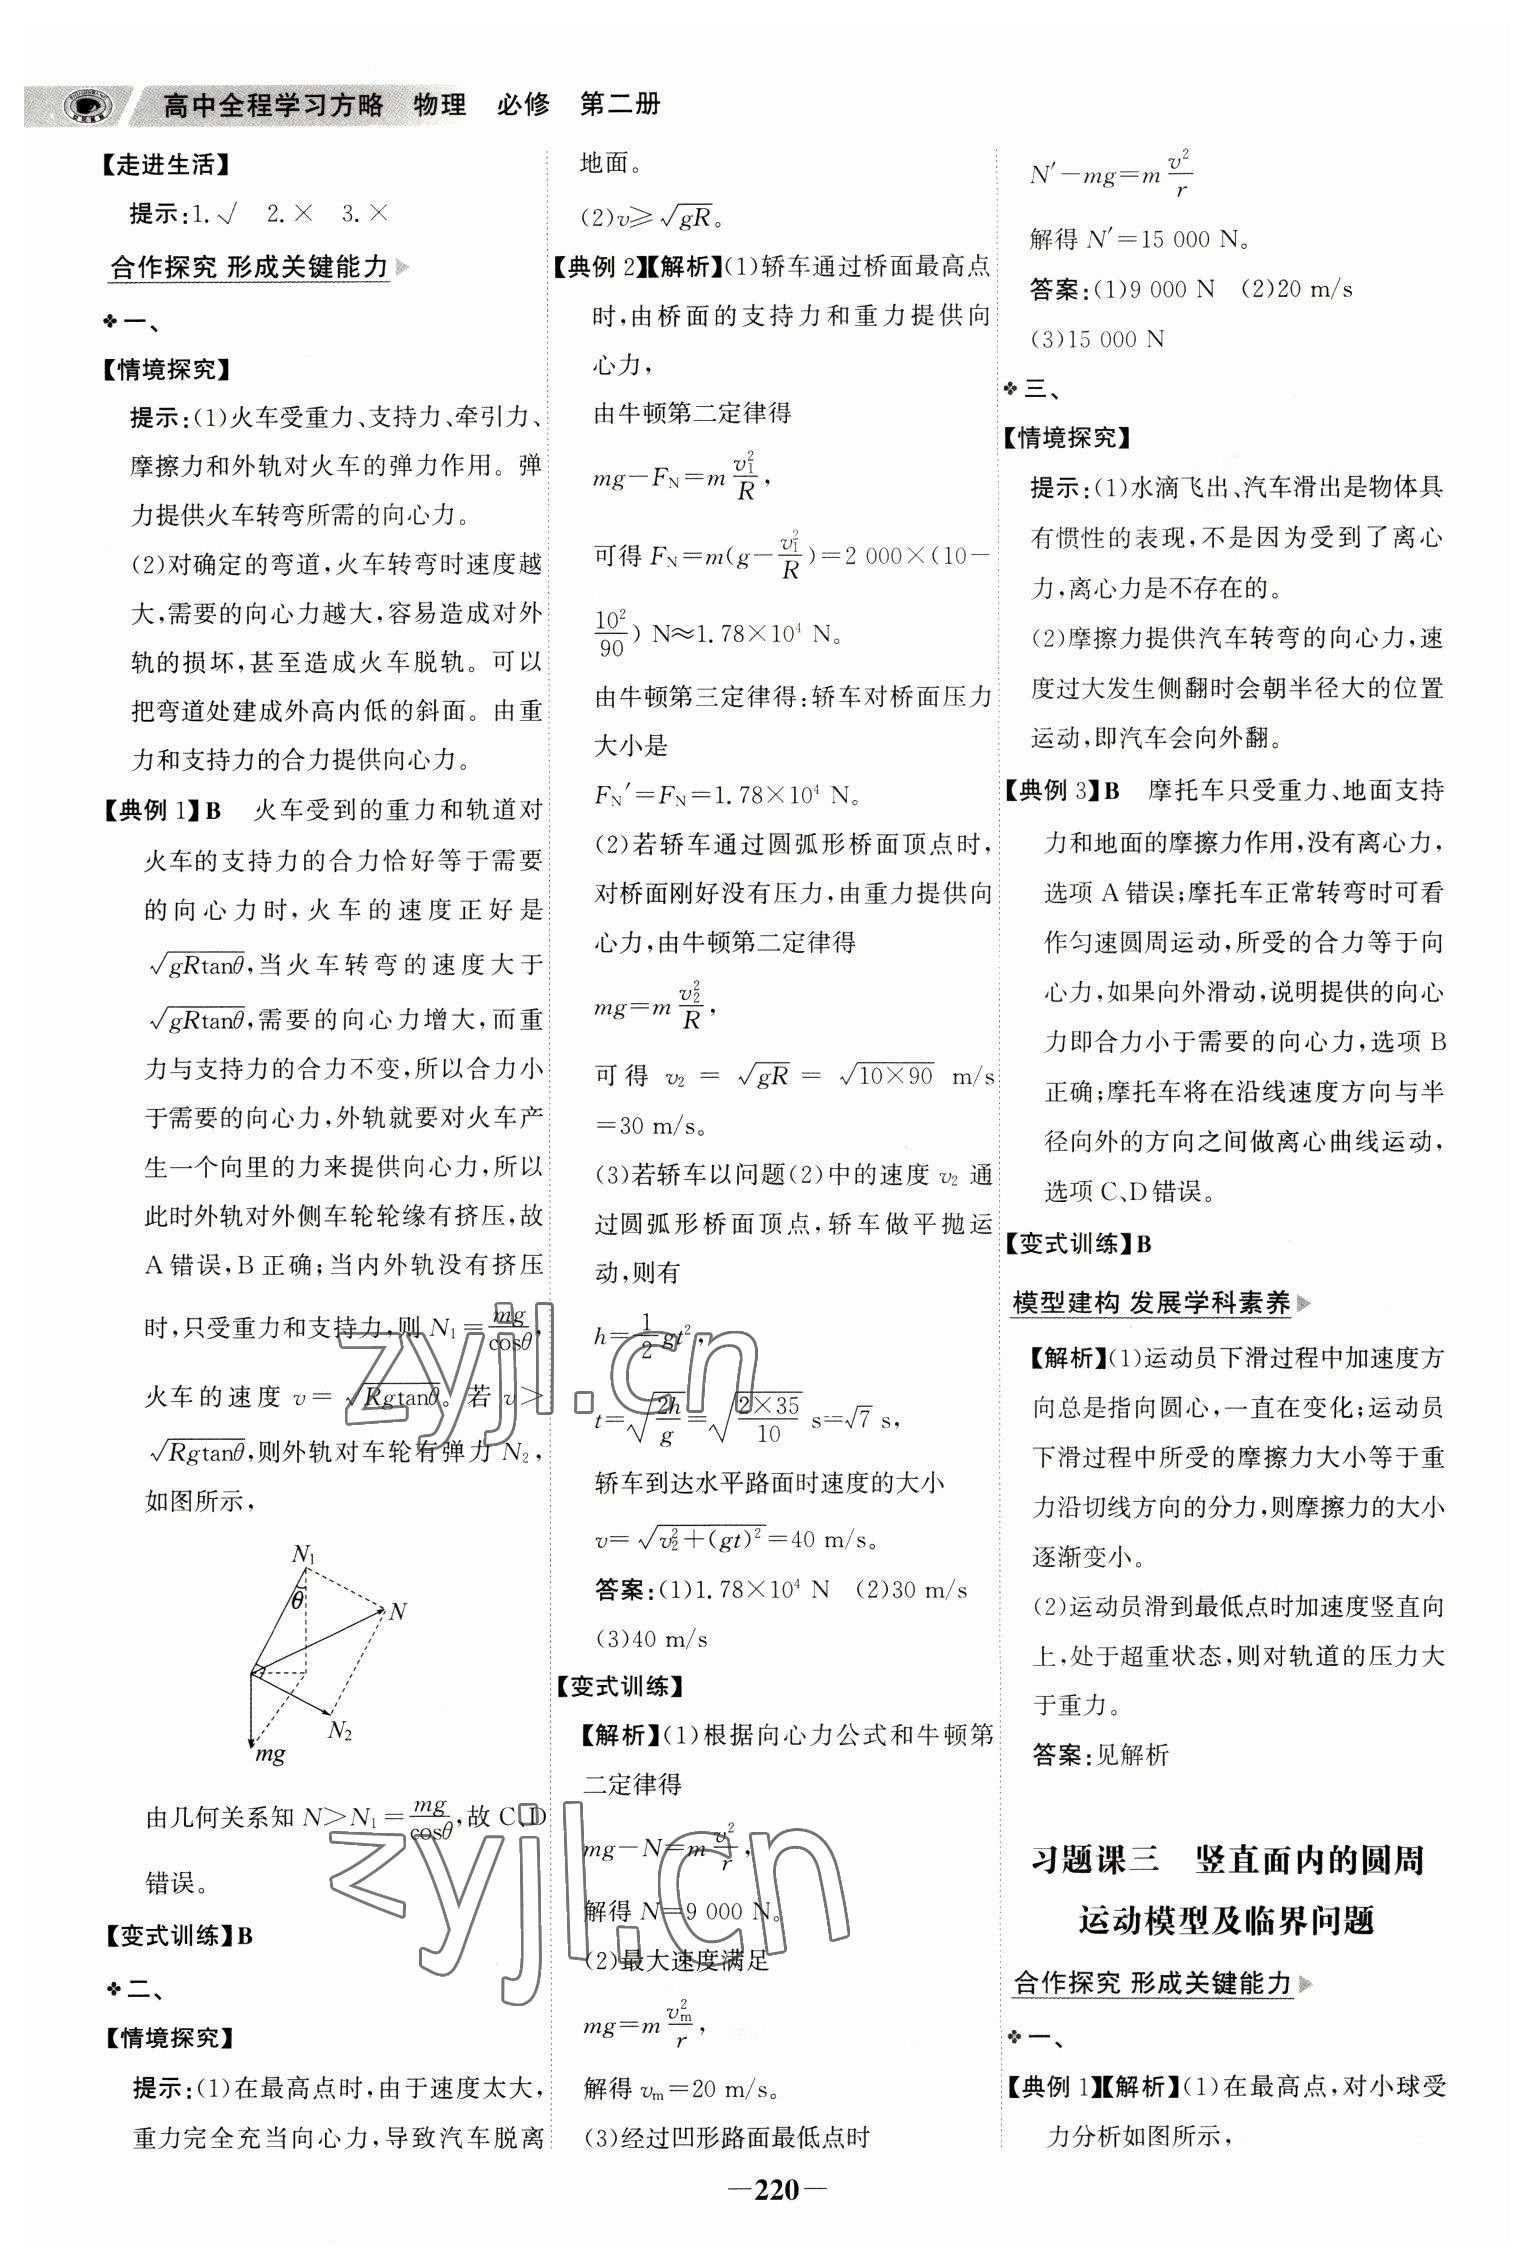 高中全程学习方略 物理 必修 第二册
【走进生活】
提示:1.√ 2.× 3.×
合作探究 形成关键能力
一、
【情境探究】
提示:(1)火车受重力、支持力、牵引力、
摩擦力和外轨对火车的弹力作用。弹
力提供火车转弯所需的向心力。
(2)对确定的弯道,火车转弯时速度越
大,需要的向心力越大,容易造成对外
轨的损坏,甚至造成火车脱轨。可以
把弯道处建成外高内低的斜面。由重
力和支持力的合力提供向心力。
【典例 1】B 火车受到的重力和轨道对
火车的支持力的合力恰好等于需要
的向心力时,火车的速度正好是
√(gRtanθ),当火车转弯的速度大于
√(gRtanθ),需要的向心力增大,而重
力与支持力的合力不变,所以合力小
于需要的向心力,外轨就要对火车产
生一个向里的力来提供向心力,所以
此时外轨对外侧车轮轮缘有挤压,故
A错误,B正确;当内外轨没有挤压
时,只受重力和支持力,则 N₁=mg/cosθ,
火车的速度 v=√(Rgtanθ)。若 v>
√(Rgtanθ),则外轨对车轮有弹力 N₂,
如图所示,
N₁
θ
N
N₂
mg
由几何关系知 N>N₁=mg/cosθ,故C、D
错误。
【变式训练】B
二、
【情境探究】
提示:(1)在最高点时,由于速度太大,
重力完全充当向心力,导致汽车脱离
地面。
(2)v≥√(gR)。
【典例 2】【解析】(1)轿车通过桥面最高点
时,由桥面的支持力和重力提供向
心力,
由牛顿第二定律得
mg-F_N=m v₁²/R,
可得 F_N=m(g-v₁²/R)=2 000×(10-
10²/90) N≈1.78×10⁴ N。
由牛顿第三定律得:轿车对桥面压力
大小是
F_N′=F_N=1.78×10⁴ N。
(2)若轿车通过圆弧形桥面顶点时,
对桥面刚好没有压力,由重力提供向
心力,由牛顿第二定律得
mg=m v₂²/R,
可得 v₂ = √(gR) = √(10×90) m/s
=30 m/s。
(3)若轿车以问题(2)中的速度 v₂ 通
过圆弧形桥面顶点,轿车做平抛运
动,则有
h=1/2 gt²,
t=√(2h/g)=√(2×35/10) s=√7 s,
轿车到达水平路面时速度的大小
v=√(v₂²+(gt)²)=40 m/s。
答案:(1)1.78×10⁴ N (2)30 m/s
(3)40 m/s
【变式训练】
【解析】(1)根据向心力公式和牛顿第
二定律得
mg-N=m v²/r,
解得 N=9 000 N。
(2)最大速度满足
mg=m v_m²/r,
解得 v_m=20 m/s。
(3)经过凹形路面最低点时
N′-mg=m v²/r
解得 N′=15 000 N。
答案:(1)9 000 N (2)20 m/s
(3)15 000 N
三、
【情境探究】
提示:(1)水滴飞出、汽车滑出是物体具
有惯性的表现,不是因为受到了离心
力,离心力是不存在的。
(2)摩擦力提供汽车转弯的向心力,速
度过大发生侧翻时会朝半径大的位置
运动,即汽车会向外翻。
【典例 3】B 摩托车只受重力、地面支持
力和地面的摩擦力作用,没有离心力,
选项A错误;摩托车正常转弯时可看
作匀速圆周运动,所受的合力等于向
心力,如果向外滑动,说明提供的向心
力即合力小于需要的向心力,选项B
正确;摩托车将在沿线速度方向与半
径向外的方向之间做离心曲线运动,
选项C、D错误。
【变式训练】B
模型建构 发展学科素养
【解析】(1)运动员下滑过程中加速度方
向总是指向圆心,一直在变化;运动员
下滑过程中所受的摩擦力大小等于重
力沿切线方向的分力,则摩擦力的大小
逐渐变小。
(2)运动员滑到最低点时加速度竖直向
上,处于超重状态,则对轨道的压力大
于重力。
答案:见解析
习题课三 竖直面内的圆周
运动模型及临界问题
合作探究 形成关键能力
一、
【典例 1】【解析】(1)在最高点,对小球受
力分析如图所示,
—220—
zyjl.cn
zyjl.cn